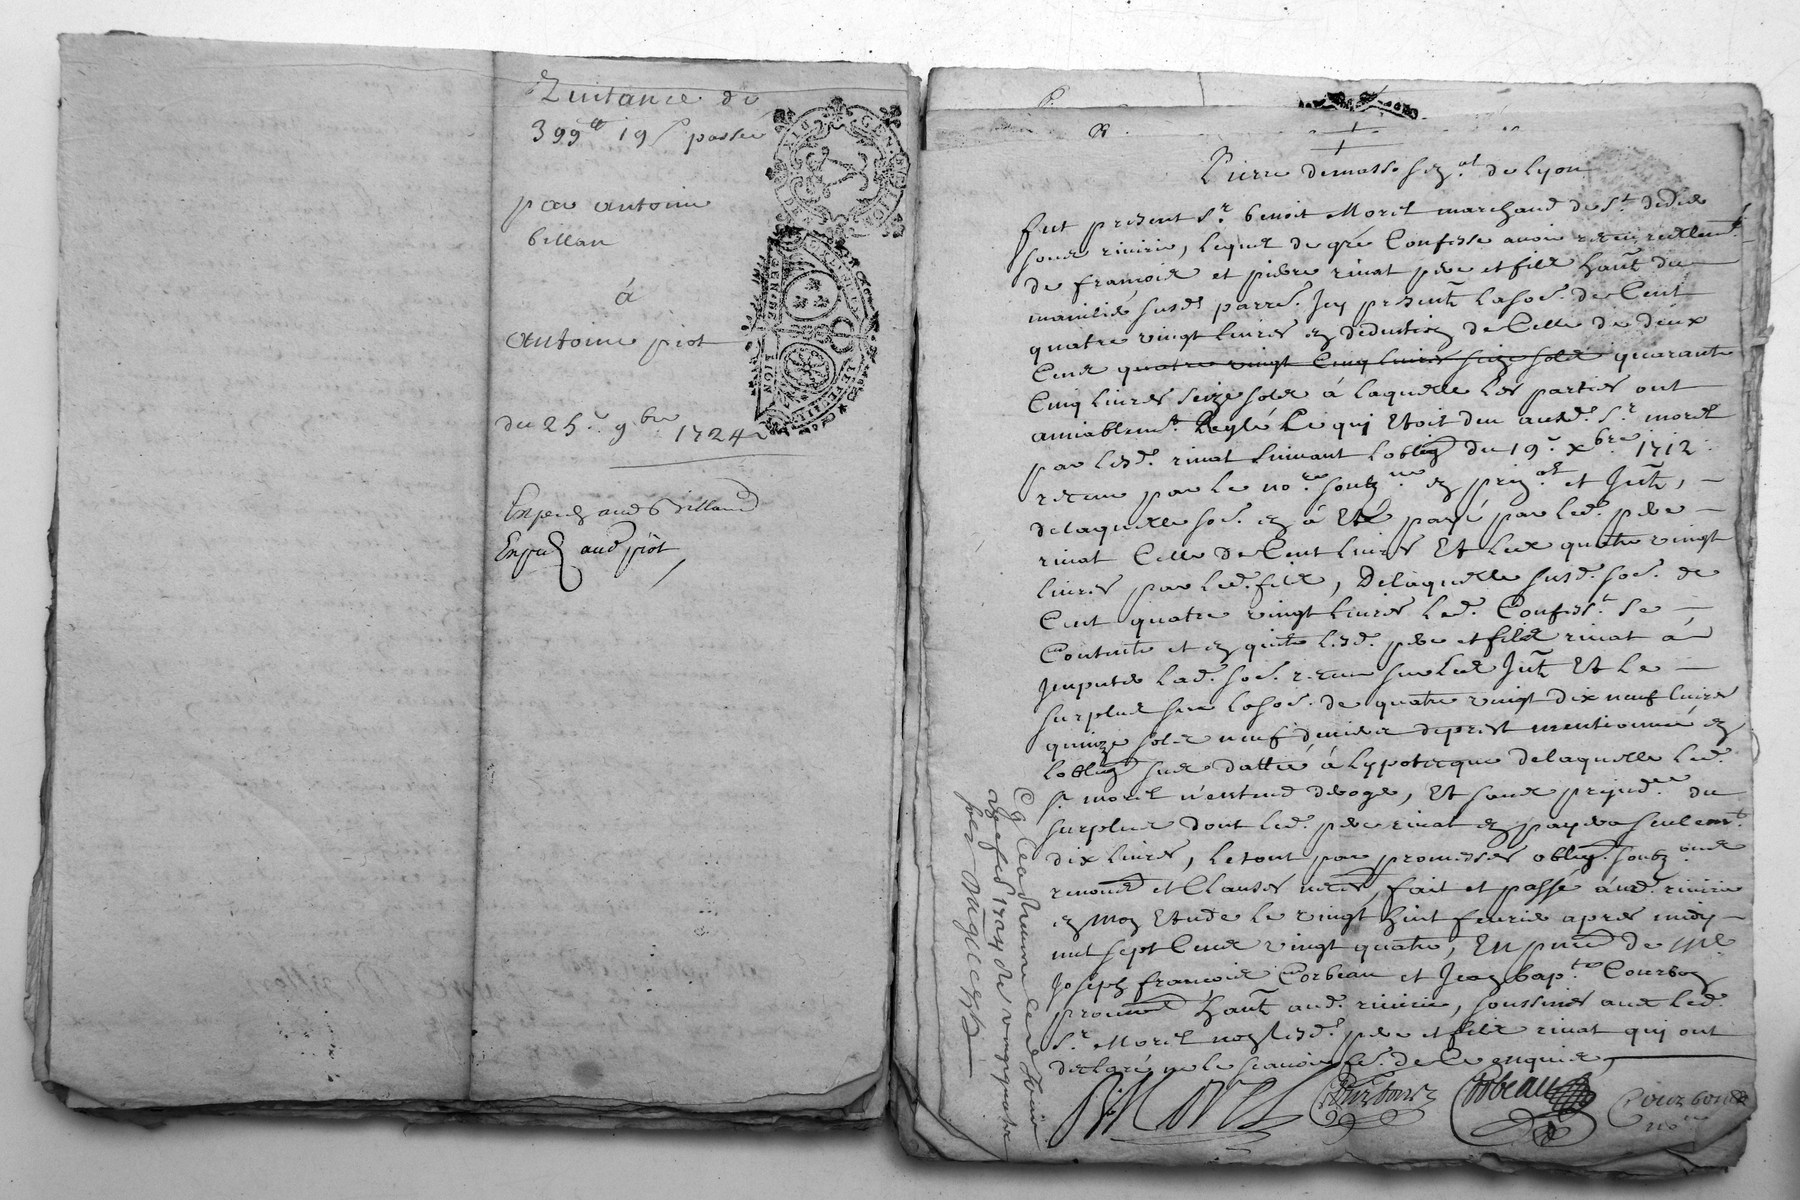 Quittance de
399tt 19 s passée
par antoine
billau
à
antoine piot
du 25e 9bre 1724
Expedié aud billaud
Expedié aud piot
GEN. DE LION
Pierre demasso de Lyon
fut present Sr. benoit Morel marchand de St. didier
sous riuirie, lequel de gré Confesse auoir receu reellemt.
de francois et pierre rinat pere et fils hants. du
susd. parres. Icy presents la soe. de Cent
quatre vingt liures en deduction de Celle de deux
Cens quatre vingt Cinq liures seize sols quarante
Cinq liures seize sols à laquelle les parties ont
amiablemt. Reglé Ce qui Etoit deu aud. Sr. morel
par lesd. rinat suiuant lobligé du 19e. Xbre. 1712.
receue par le nore. soubzné en pripal et Jnts,
delaquelle soe. en à Eté payé par led. pere
rinat Celle de Cent liures Et Les quatre vingt
liures par led. fils, Delaquelle susd. soe. de
Cent quatre vingt liures led. Confest. se
Contente et en quitte lesd. pere et fils rinat à
Jmputer lad. soe. receue sur les Jnts Et le
surplus sur la soe. de quatre vingt dix neuf liures
quinze sols neuf deniers deprest mentionnée en
lobligé sus datté à lypotecque delaquelle led.
Sr. morel n'entend deroger, Et sans prejudce. du
surplus dont led. pere rinat en payera seulemt.
dix liures, le tout par promesses oblign. soubzons
renonons et Clauses neces, fait et passé aud. riuirie
en mon Etude le vingt huit feurier apres midy
mil sept Cens vingt quatre, En pnce de Me
Joseph francois Corbeau et Jean bapte. Courbon
hants aud. riuirie, soussinés auec led.
Sr. Morel non lesd. pere et fils rinat qui ont
declaré ne le scauoir fe. de Ce enquis,
B: MOREL Courbon Corbeau Courbon
nore